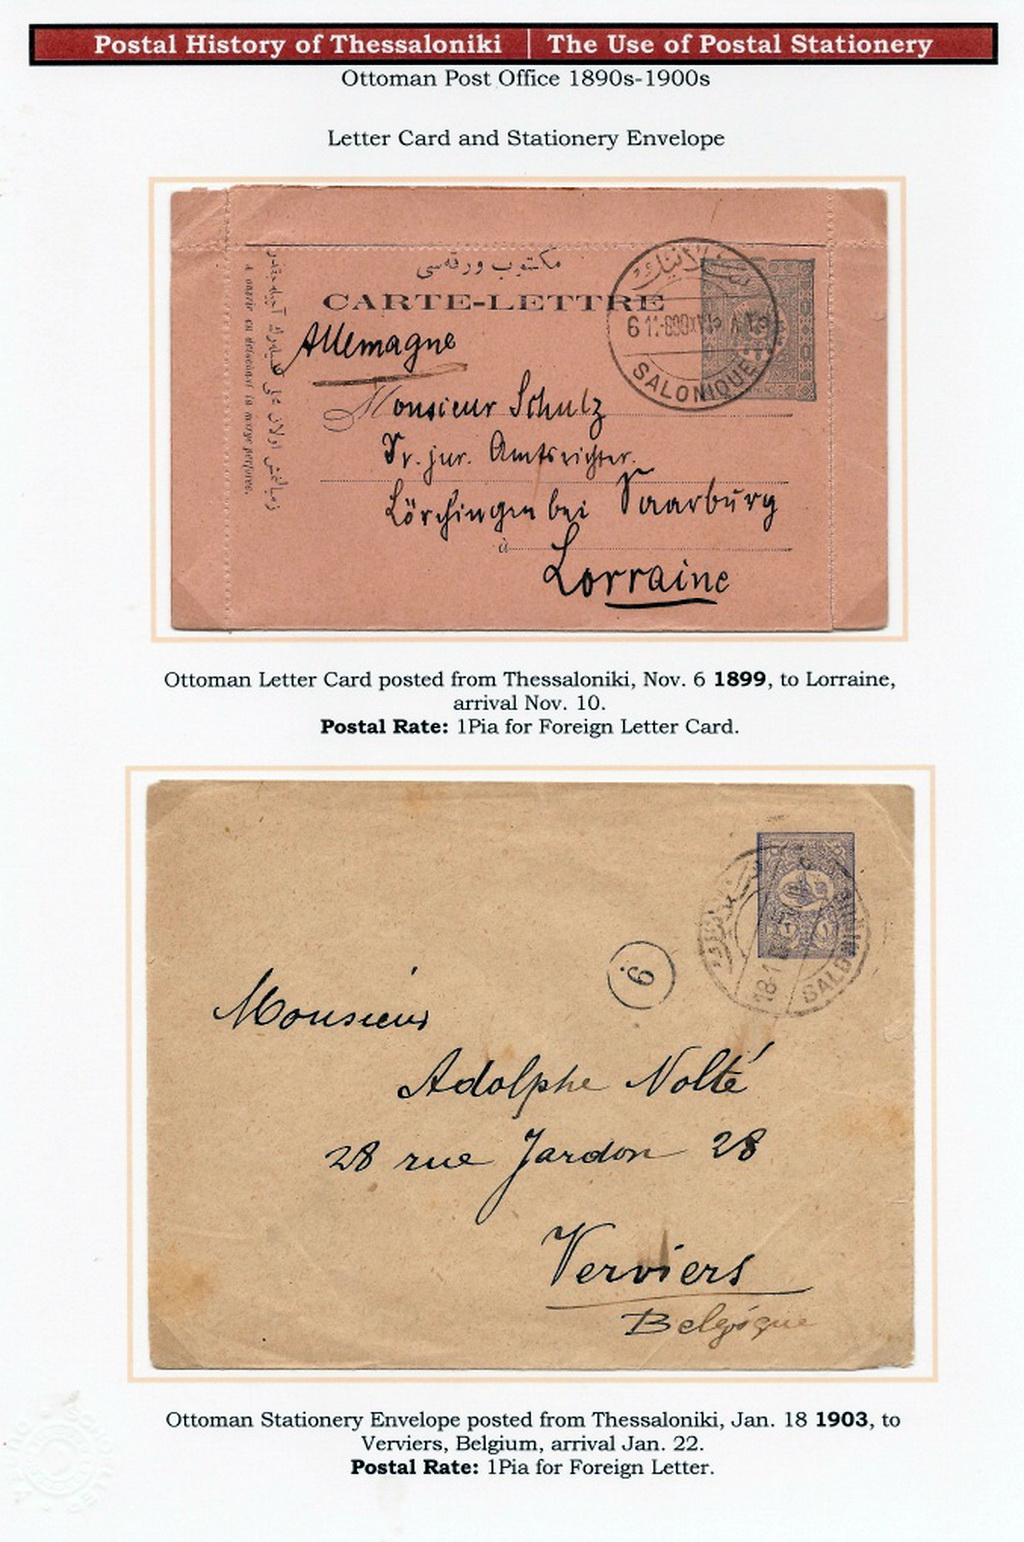 Postal History of Thessaloniki | The Use of Postal Stationery
Ottoman Post Office 1890s-1900s
Letter Card and Stationery Envelope
مكتوب ورقه‌سی
CARTE-LETTRE
Allemagne
Monsieur Schulz
Dr. jur. Amtsrichter.
Lörchingen bei Saarburg
à
Lorraine
سلانیك
6 11
SALONIQUE
Ottoman Letter Card posted from Thessaloniki, Nov. 6 1899, to Lorraine,
arrival Nov. 10.
Postal Rate: 1Pia for Foreign Letter Card.
18-1
Monsieur
Adolphe Nolté
28 rue Jardon 28
Verviers
Belgique
Ottoman Stationery Envelope posted from Thessaloniki, Jan. 18 1903, to
Verviers, Belgium, arrival Jan. 22.
Postal Rate: 1Pia for Foreign Letter.